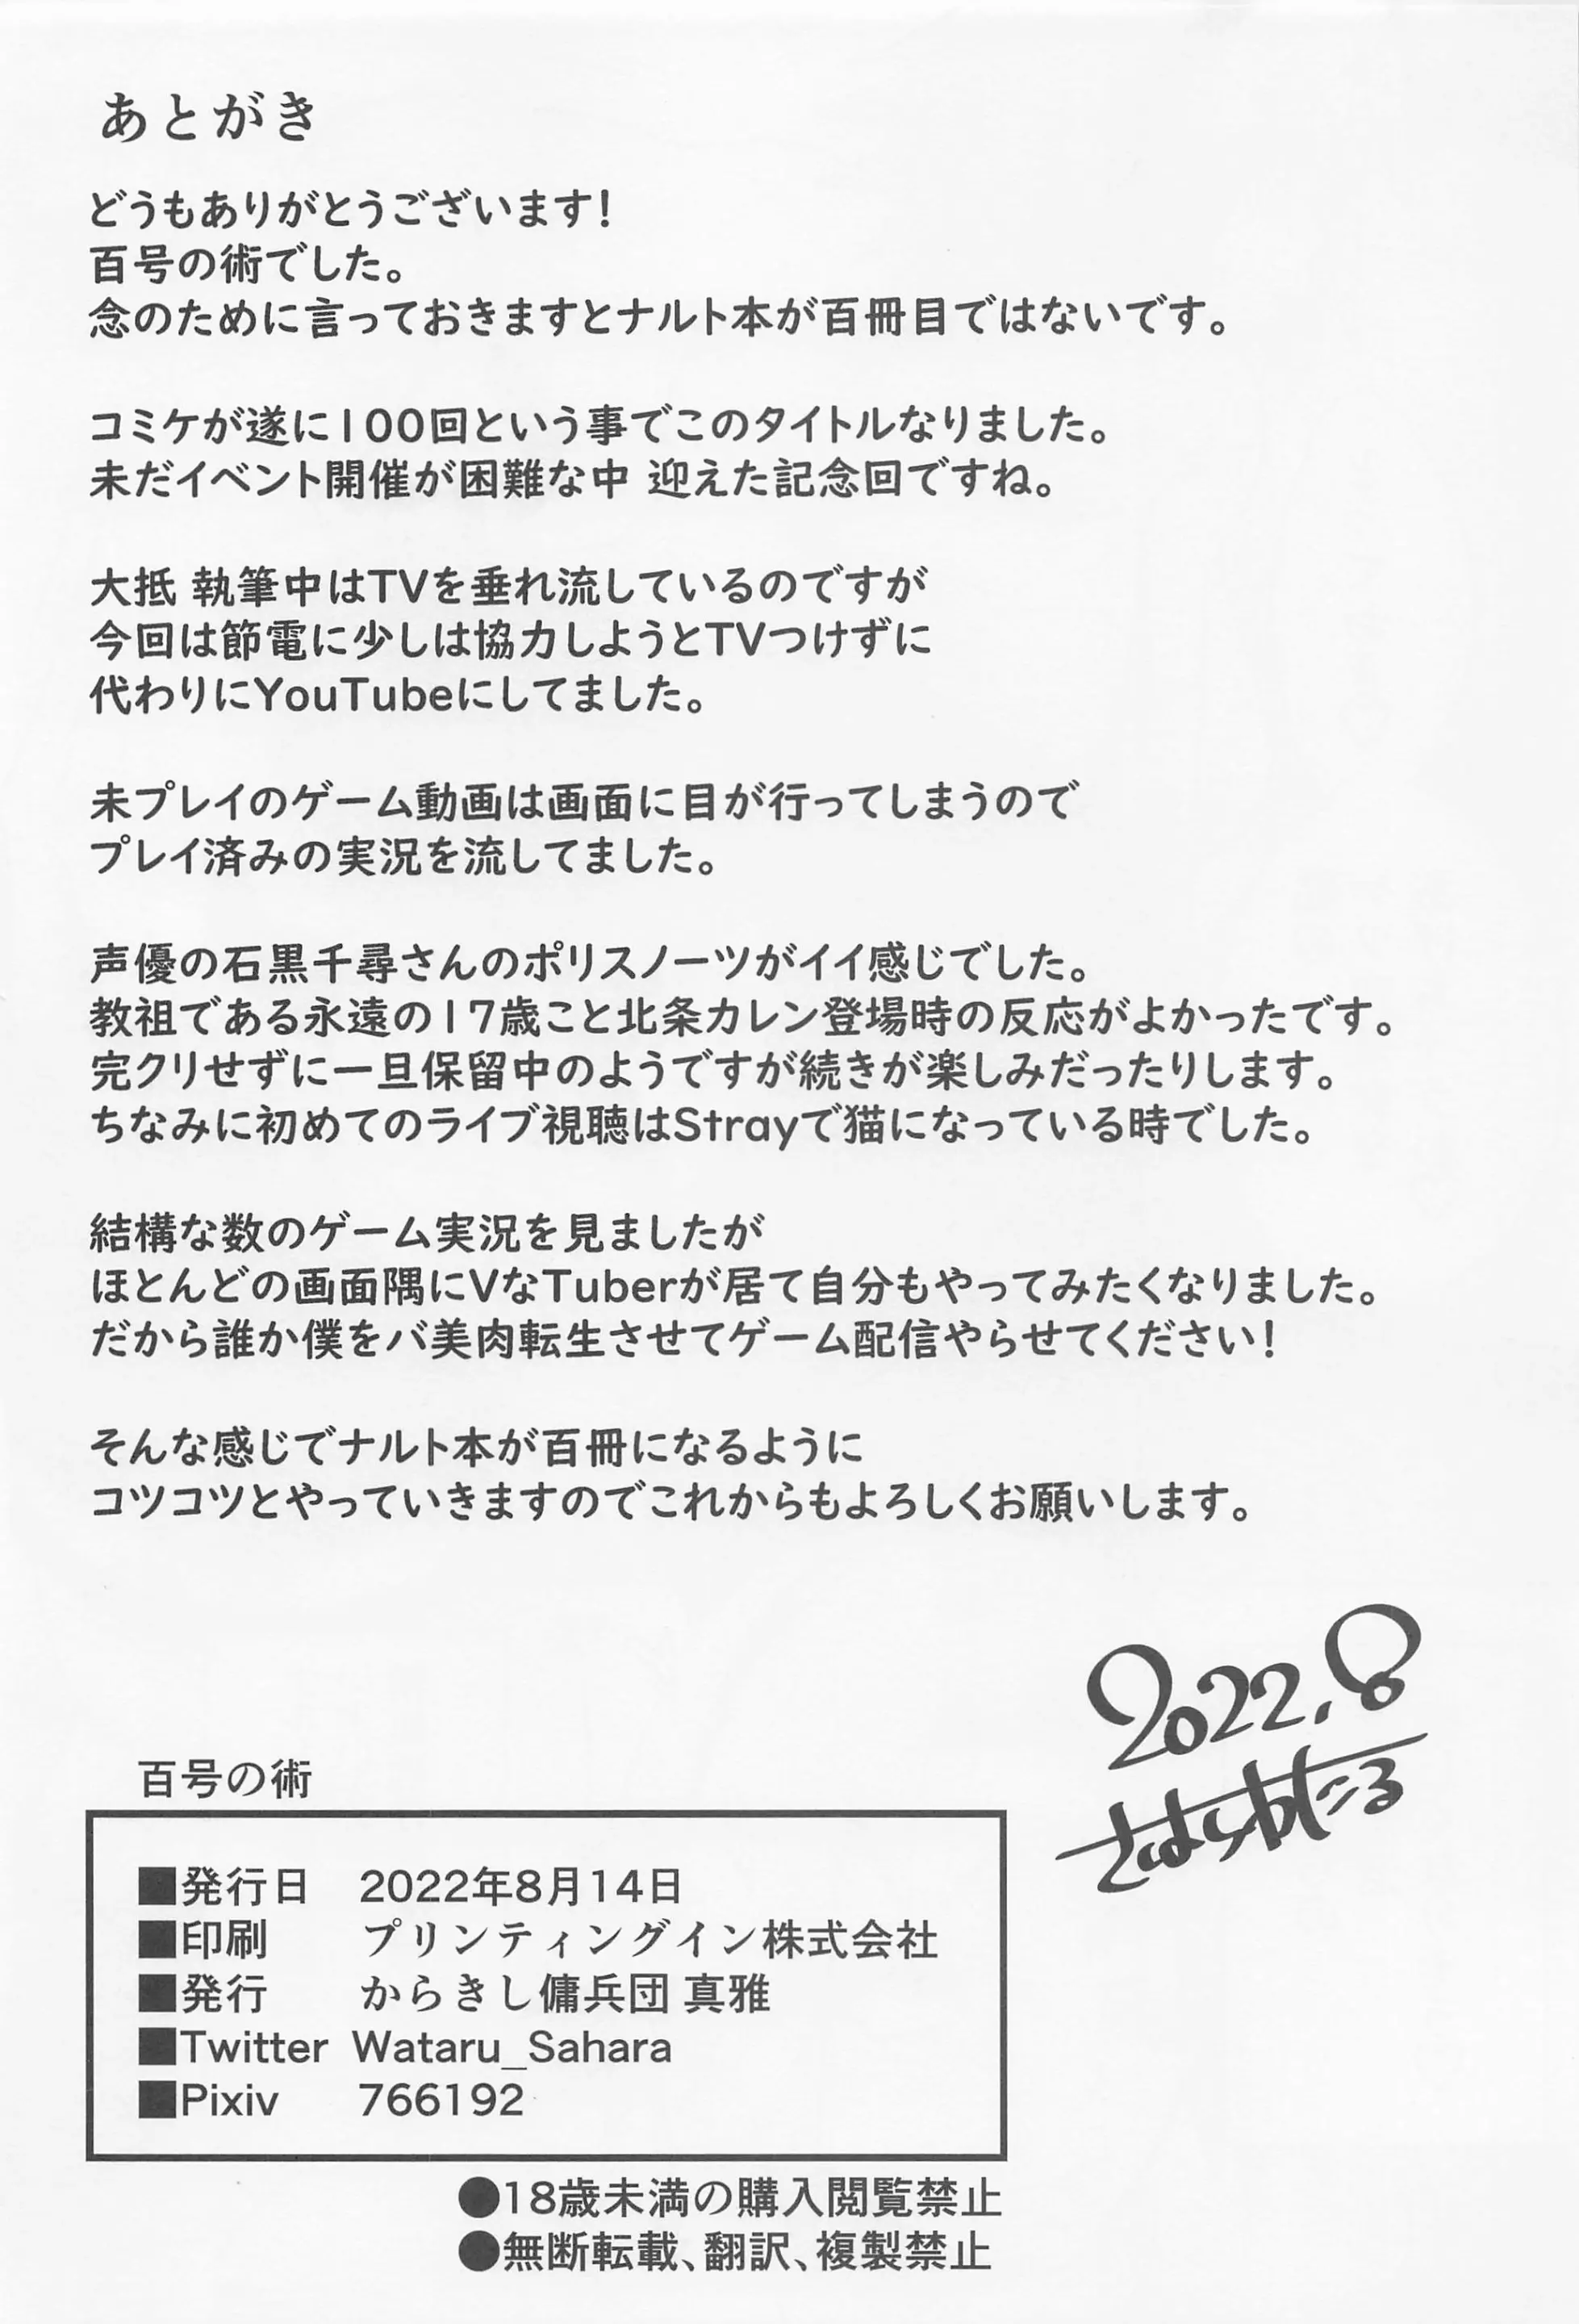 あとがき
どうもありがとうございます！
百号の術でした。
念のために言っておきますとナルト本が百冊目ではないです。
コミケが遂に100回という事でこのタイトルなりました。
未だイベント開催が困難な中 迎えた記念回ですね。
大抵 執筆中はTVを垂れ流しているのですが
今回は節電に少しは協力しようとTVつけずに
代わりにYouTubeにしてました。
未プレイのゲーム動画は画面に目が行ってしまうので
プレイ済みの実況を流してました。
声優の石黒千尋さんのポリスノーツがイイ感じでした。
教祖である永遠の17歳こと北条カレン登場時の反応がよかったです。
完クリせずに一旦保留中のようですが続きが楽しみだったりします。
ちなみに初めてのライブ視聴はStrayで猫になっている時でした。
結構な数のゲーム実況を見ましたが
ほとんどの画面隅にVなTuberが居て自分もやってみたくなりました。
だから誰か僕をバ美肉転生させてゲーム配信やらせてください！
そんな感じでナルト本が百冊になるように
コツコツとやっていきますのでこれからもよろしくお願いします。
2022.8
さはらわたる
百号の術
■発行日 2022年8月14日
■印刷 プリンティングイン株式会社
■発行 からきし傭兵団 真雅
■Twitter Wataru_Sahara
■Pixiv 766192
●18歳未満の購入閲覧禁止
●無断転載、翻訳、複製禁止